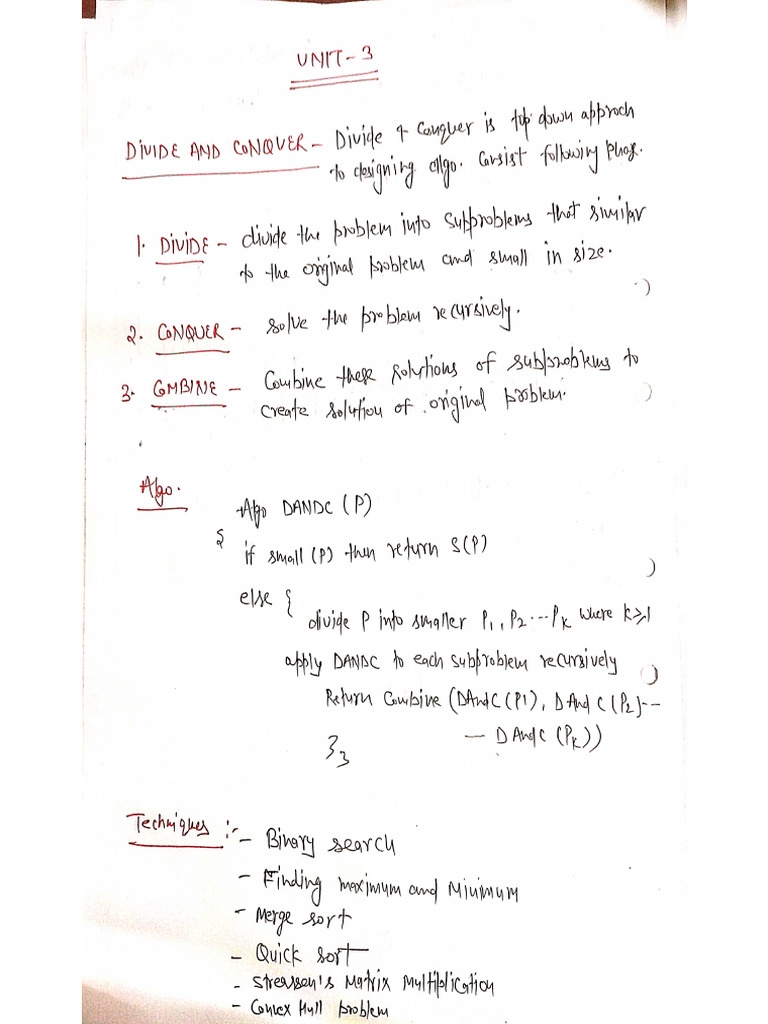 UNIT-3
DIVIDE AND CONQUER - Divide & Conquer is top down approch
to designing algo. Consist following Phas.
1. DIVIDE - divide the problem into subproblems that similar
to the original problem and small in size.
2. CONQUER - solve the problem recursively.
3. COMBINE - Combine these solutions of subproblems to
create solution of original problem.
Algo.
Algo DANDC (P)
{
if small (P) then return S(P)
else {
divide P into smaller P1, P2 ... PK where k≥1
apply DANDC to each subproblem recursively
Return Combine (DAndC (P1), DAndC (P2) --
-- DAndC (PK))
}}
Techniques :-
- Binary search
- Finding maximum and Minimum
- Merge sort
- Quick sort
- Stressen's Matrix Multiplication
- Convex Hull problem